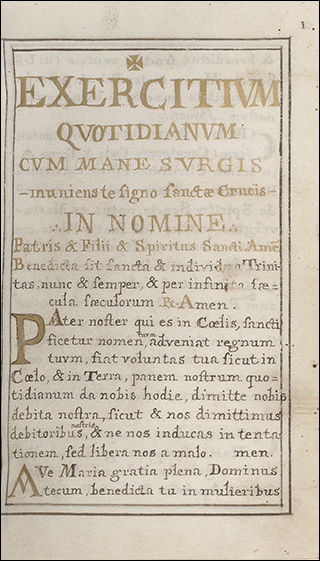 1
✠
EXERCITIVM
QVOTIDIANVM
CVM MANE SVRGIS
-muniens te signo sanctæ Crucis-
∴IN NOMINE∴
Patris & Filii & Spiritus Sancti Amē
Benedicta sit sancta & individua Trini-
tas, nunc & semper, & per infinita sæ-
cula sæculorum. R. Amen.
PAter noster qui es in Cœlis, sancti
ficetur nomen tuum, adveniat regnum
tuvm, fiat voluntas tua sicut in
Cœlo, & in Terra, panem nostrum quo-
tidianum da nobis hodie, dimitte nobis
debita nostra, sicut & nos dimittimus
debitoribus nostris, & ne nos inducas in tenta
tionem, sed libera nos a malo. men.
AVe Maria gratia plena, Dominus
tecum, benedicta tu in mulieribus